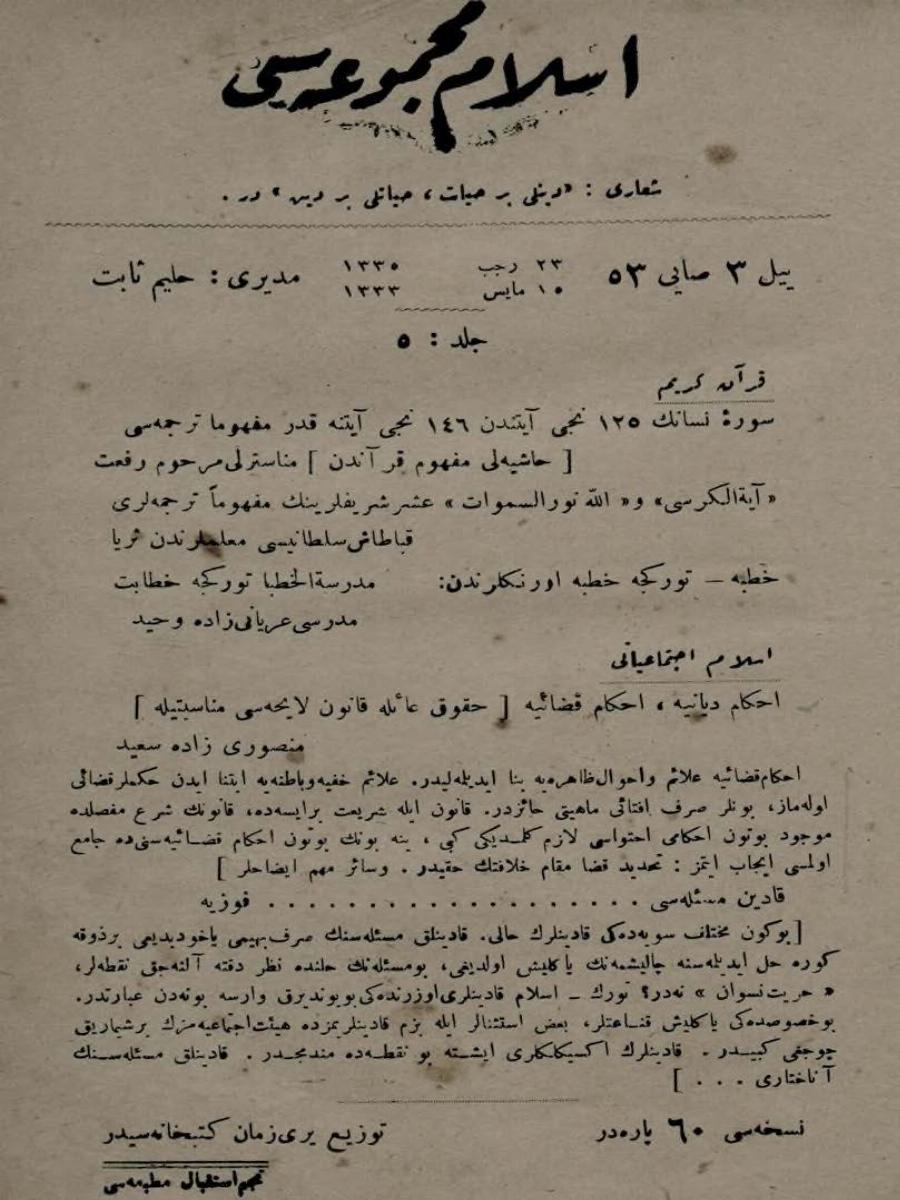 اسلام مجموعه‌سی
شعاری : «دینلی بر حیات، حیاتلی بر دین» در .
ییل ٣ صایی ٥٣
٢٣ رجب ١٣٣٥
١٥ مایس ١٣٣٣
مدیری : حلیم ثابت
جلد : ٥
قرآن کریم
سورۀ نسانك ١٢٥ نجی آیتندن ١٤٦ نجی آیتنه قدر مفهوما ترجمه‌سی
[ حاشیه‌لی مفهوم قرآندن ] مناسترلی مرحوم رفعت
«آیة الکرسی» و« الله نور السموات » عشر شریفلرینك مفهوماً ترجمه‌لری
قباطاش سلطانیسی معلملرندن ثریا
خطبه – تورکجه خطبه اورنکلرندن: مدرسة الخطبا تورکجه خطابت
مدرسی عریانی زاده وحید
اسلام اجتماعیاتی
احکام دیانیه ، احکام قضائیه [ حقوق عائله قانون لایحه‌سی مناسبتیله ]
منصوری زاده سعید
احکام قضائیه علائم واحوال ظاهره‌یه بنا ایدیله‌لیدر. علائم خفیه وباطنه‌یه ابتنا ایدن حکملر قضائی
اوله‌ماز، بونلر صرف افتائی ماهیتی حائزدر. قانون ایله شریعت برایسه‌ده، قانونك شرع مفصلده
موجود بوتون احکامی احتواسی لازم کلمدیکی کبی ، ینه بونك بوتون احکام قضائیه سنی‌ده جامع
اولمسی ایجاب ایتمز : تحدید قضا مقام خلافتك حقیدر . وسائر مهم ایضاحلر ]
قادین مسئله‌سی . . . . . . . . . . . . . . . . . . فوزیه
[ بوکون مختلف سویه‌ده‌کی قادینلرك حالی. قادینلق مسئله‌سنك صرف بهیمی یاخود بدیعی برذوقه
کوره حل ایدیله‌سنه چالیشمه‌نك یاکلیش اولدیغی، بومسئله‌نك حلنده نظر دقته آلنه‌جق نقطه‌لر،
« حریت نسوان » نه‌در؟ تورك – اسلام قادینلری اوزرنده‌کی بویوندیرق وارسه بونه‌دن عبارتدر.
بوخصوصده‌کی یاکلیش قناعتلر، بعض استثنالر ایله بزم قادینلریمزده هیئت اجتماعیه‌مزك برشیماریق
چوجغی کبیدر . قادینلرك اکسیکلکلری ایشته بو نقطه‌ده مندمجدر . قادینلق مسئله‌سنك
آناختاری . . . ]
نسخه‌سی ٦٠ پاره‌در
توزیع یری زمان کتبخانه‌سیدر
نجم استقبال مطبعه‌سی